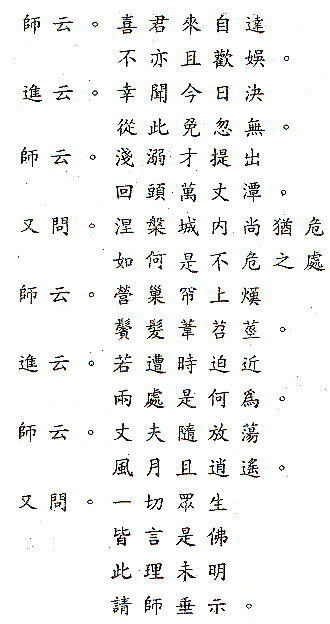 師云。喜君來自達
不亦且歡娛。
進云。幸聞今日決
從此免忽無。
師云。淺溺才提出
回頭萬丈潭。
又問。涅槃城内尚猶危
如何是不危之處
師云。營巢帘上燠
鬢髮葦苕莖。
進云。若遭時迫近
兩處是何為。
師云。丈夫隨放蕩
風月且逍遙。
又問。一切眾生
皆言是佛
此理未明
請師垂示。